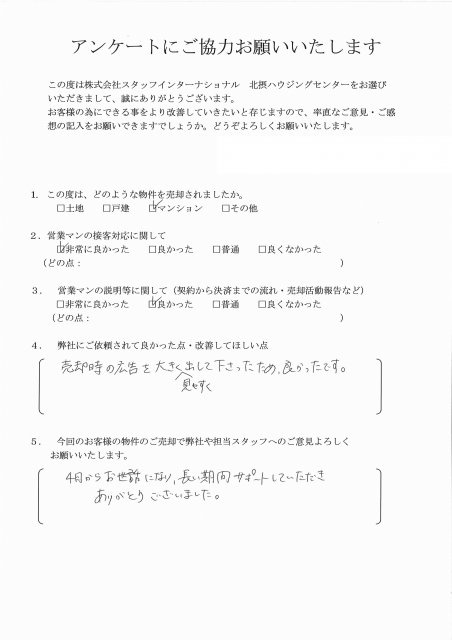 アンケートにご協力お願いいたします
この度は株式会社スタッフインターナショナル　北摂ハウジングセンターをお選び
いただきまして、誠にありがとうございます。
お客様の為にできる事をより改善していきたいと存じますので、率直なご意見・ご感
想の記入をお願いできますでしょうか。どうぞよろしくお願いいたします。
1. この度は、どのような物件を売却されましたか。
□土地　□戸建　☑マンション　□その他
２．営業マンの接客対応に関して
☑非常に良かった　□良かった　□普通　□良くなかった
（どの点：　）
３．　営業マンの説明等に関して（契約から決済までの流れ・売却活動報告など）
□非常に良かった　☑良かった　□普通　□良くなかった
（どの点：　）
４．　弊社にご依頼されて良かった点・改善してほしい点
売却時の広告を大きく出して下さったため、良かったです。
見やすく
５．　今回のお客様の物件のご売却で弊社や担当スタッフへのご意見よろしく
お願いいたします。
4月からお世話になり、長い期間サポートしていただき
ありがとうございました。